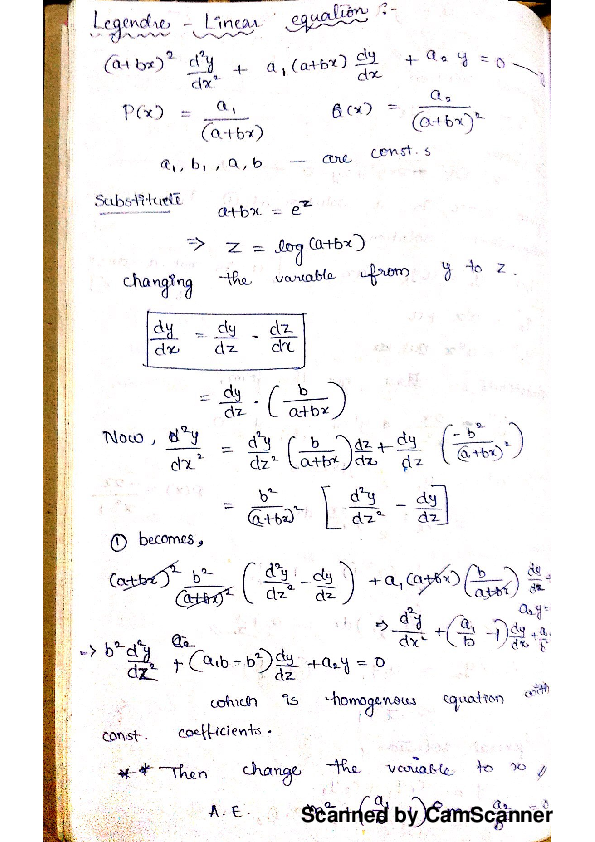 Legendre - Linear equation :-
(a+bx)² d²y/dx² + a₁(a+bx) dy/dx + a₂ y = 0
P(x) = a₁/(a+bx) Q(x) = a₂/(a+bx)²
a₁, b₁, a, b — are const.s
Substitute a+bx = e^z
⇒ z = log(a+bx)
changing the variable from y to z.
dy/dx = dy/dz · dz/dx
= dy/dz · (b/(a+bx))
Now, d²y/dx² = d²y/dz² (b/(a+bx)) dz/dx + dy/dz (-b²/(a+bx)²)
= b²/(a+bx)² [d²y/dz² - dy/dz]
① becomes,
(a+bx)² b²/(a+bx)² (d²y/dz² - dy/dz) + a₁(a+bx) (b/(a+bx)) dy/dz +
a₂y =
⇒ d²y/dx² + (a₁/b - 1) dy/dz +
⇒ b² d²y/dz² + (a₁b - b²) dy/dz + a₂y = 0
which is homogenous equation with
const. coefficients.
** Then change the variable to x
A.E.
Scanned by CamScanner